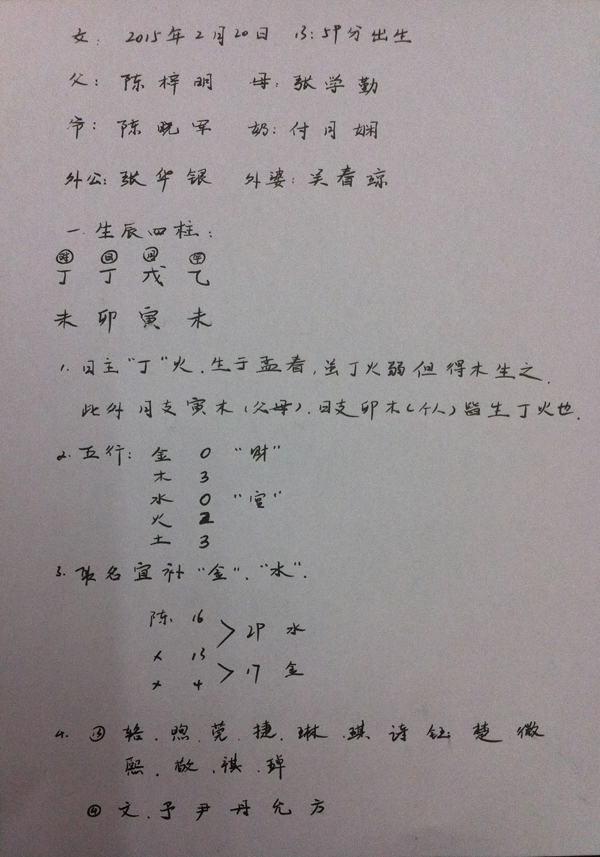 女. 2015年2月20日 13:59分出生
父: 陈梓明 母: 张学勤
爷: 陈晓军 奶: 付月娴
外公: 张华银 外婆: 吴春琼
一.生辰四柱:
时 日 月 年
丁 丁 戊 乙
未 卯 寅 未
1. 日主"丁"火.生于孟春,虽丁火弱但得木生之.
此外月支寅木(父母).日支卯木(个人)皆生丁火也.
2. 五行: 金 0 "财"
木 3
水 0 "官"
火 2
土 3
3. 取名宜补"金"."水".
陈 16
> 29 水
× 13
> 17 金
× 4
4. ⑬ 辂.煦.莞.捷.琳.琪 诗 钰 楚 微
熙.敬.祺.琸
④ 文.予 尹 丹 允 方